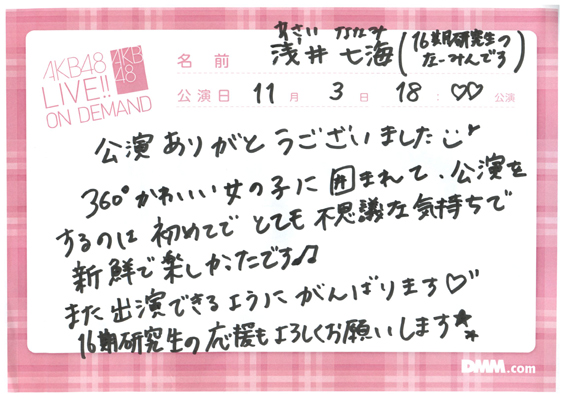 AKB48
LIVE!!
ON DEMAND
AKB
48
名前
あさい ななみ
浅井 七海 (16期研究生の
なーみんです)
公演日 11月 3日 18:♡♡公演
公演ありがとうございました
360°かわいい女の子に囲まれて、公演を
するのは初めてでとても不思議な気持ちで
新鮮で楽しかったです♫
また出演できるようにがんばります♡
16期研究生の応援もよろしくお願いします★
DMM.com